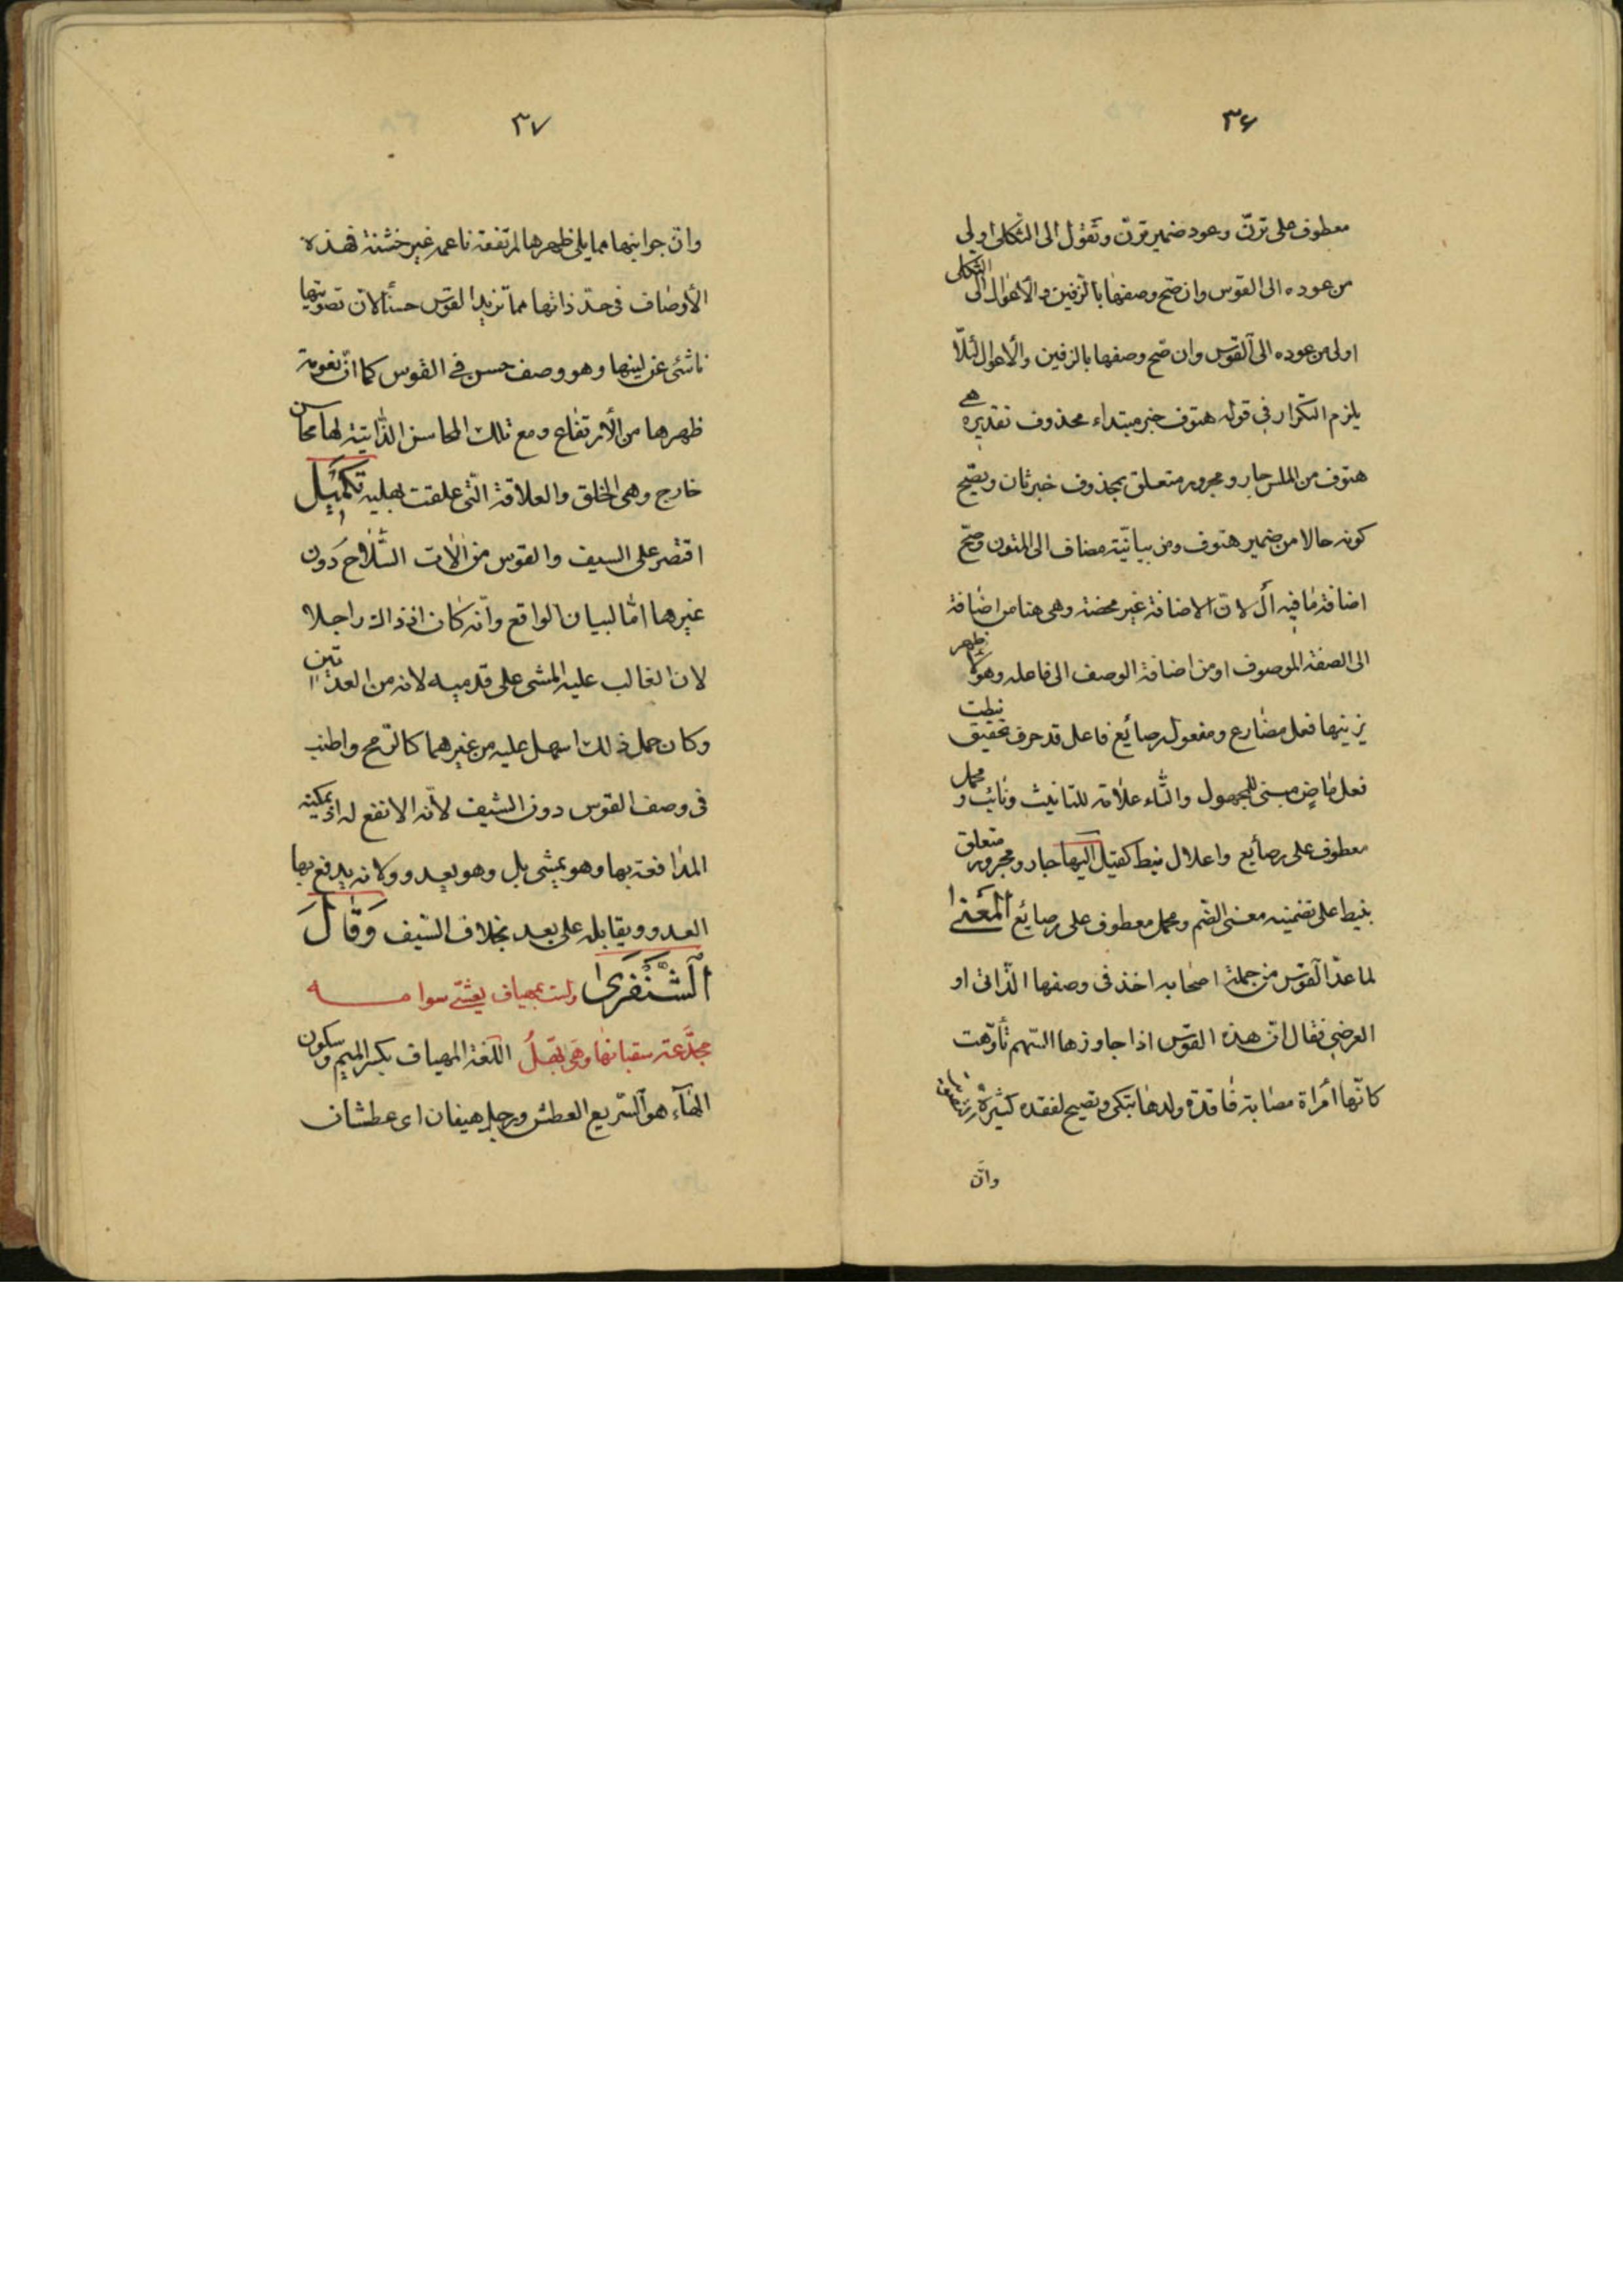 ٣٦
معطوف على ترنّ وعود ضمير ترنّ وتعول الى الثكلى اولى
من عوده الى القوس وان صح وصفها بالرنين والاعوال الى الثكلى
اولى من عوده الى القوس وان صح وصفها بالرنين والاعوال لئلّا
يلزم التكرار في قوله هتوف خبر مبتداء محذوف تقديره هي
هتوف من الملس جار ومجرور متعلق بمحذوف خبر ثان ويصح
كونه حالا من ضمير هتوف ومن بيانيّة مضاف الى المتون وصح
اضافة ما فيه ال لان الاضافة غير محضة وهي هنا من اضافة
الى الصفة الموصوف او من اضافة الوصف الى فاعله وهو الاظهر
يزينها فعل مضارع ومفعول رصائع فاعل قد حرف تحقيق نيطت
فعل ماضٍ مبنى للمجهول والتاء علامة للتانيث ونائب ومحمل
معطوف على رصائع واعلال نيط كقيل اليها جار ومجرور متعلق
بنيط على تضمينه معنى الضم ومحمل معطوف على رصايع المعنى
لما عدّ القوس من جملة اصحابه اخذ في وصفها الذّاتى او
العرضى فقال انّ هذه القوس اذا جاوزها السّهم تأوّهت
كانّها أمرأة مصابة فاقدة ولدها تبكى وتصيح لفقده كثيرة
وانّ
٣٧
وانّ جوانبها مما يلى ظهرها لمرتفعة ناعمه غير خشنة فهذه
الأوصاف في حدّ ذاتها مما تزيد القوس حسناً لان تصويتها
ناشئ عن لينها وهو وصف حسن في القوس كما انّ نعومة
ظهرها من الأرتفاع ومع تلك المحاسن الذّاتية لها محاسن
خارج وهى الحلق والعلاقة التى علقت بعليه تكميل
اقتصر على السيف والقوس من الآت السّلاح دون
غيرها امّا لبيان الواقع وانّه كان اذ ذاك راجلا
لان الغالب عليه المشى على قدميه لانه من العدّائين
وكان حمل ذلك اسهل عليه من غيرهما كالرّمح واطنب
في وصف القوس دون السّيف لأنّه الانفع له اذ يمكنه
المدافعة بها وهو يمشى بل وهو يعدو ولانه يدفع بها
العدو ويقابله على بعد بخلاف السّيف وَقَالَ
الشَّنْفَرَى ولست بمهياف يعشّى سوامه
مجدّعة سقبانها وهى بهّلُ اللّغة المهياف بكسر الميم وسكون
الهآء هو السّريع العطش ورجل هيفان اى عطشان